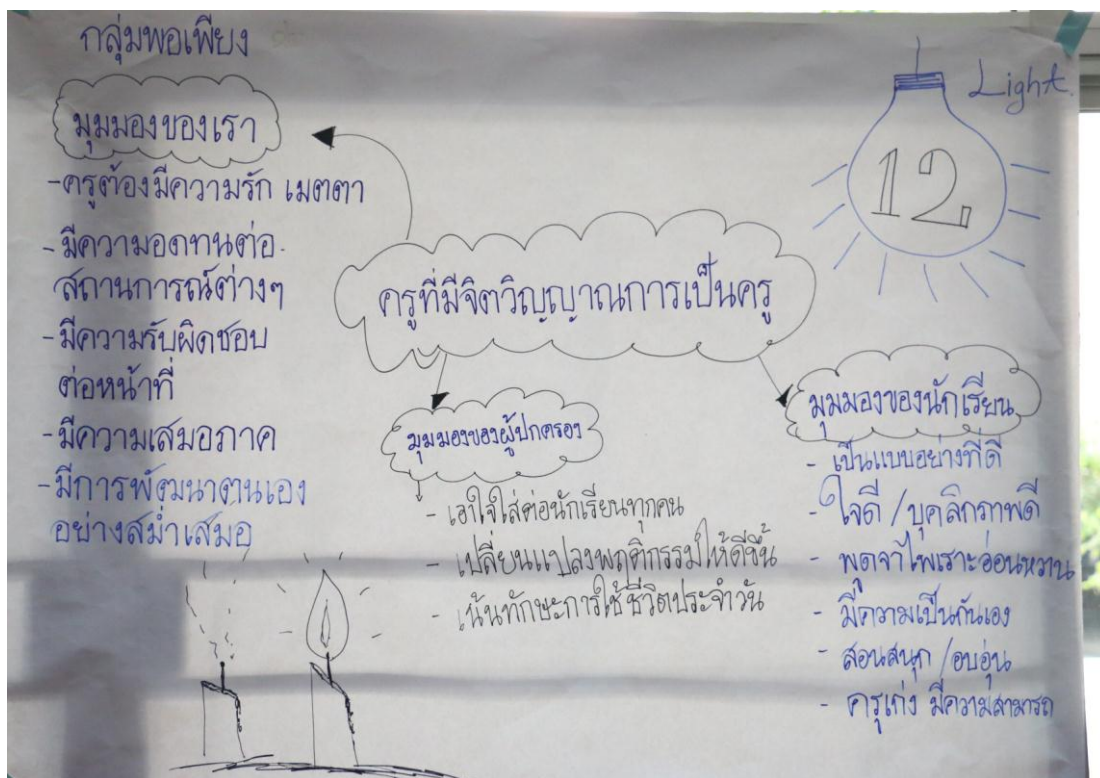 กลุ่มพอเพียง
Light.
12
มุมมองของเรา
-ครูต้องมีความรัก เมตตา
-มีความอดทนต่อ
สถานการณ์ต่างๆ
-มีความรับผิดชอบ
ต่อหน้าที่
-มีความเสมอภาค
-มีการพัฒนาตนเอง
อย่างสม่ำเสมอ
ครูที่มีจิตวิญญาณการเป็นครู
มุมมองของผู้ปกครอง
- เอาใจใส่ต่อนักเรียนทุกคน
- เปลี่ยนแปลงพฤติกรรมให้ดีขึ้น
- เน้นทักษะการใช้ชีวิตประจำวัน
มุมมองของนักเรียน
- เป็นแบบอย่างที่ดี
- ใจดี /บุคลิกภาพดี
- พูดจาไพเราะอ่อนหวาน
- มีความเป็นกันเอง
- สอนสนุก /อบอุ่น
- ครูเก่ง มีความสามารถ